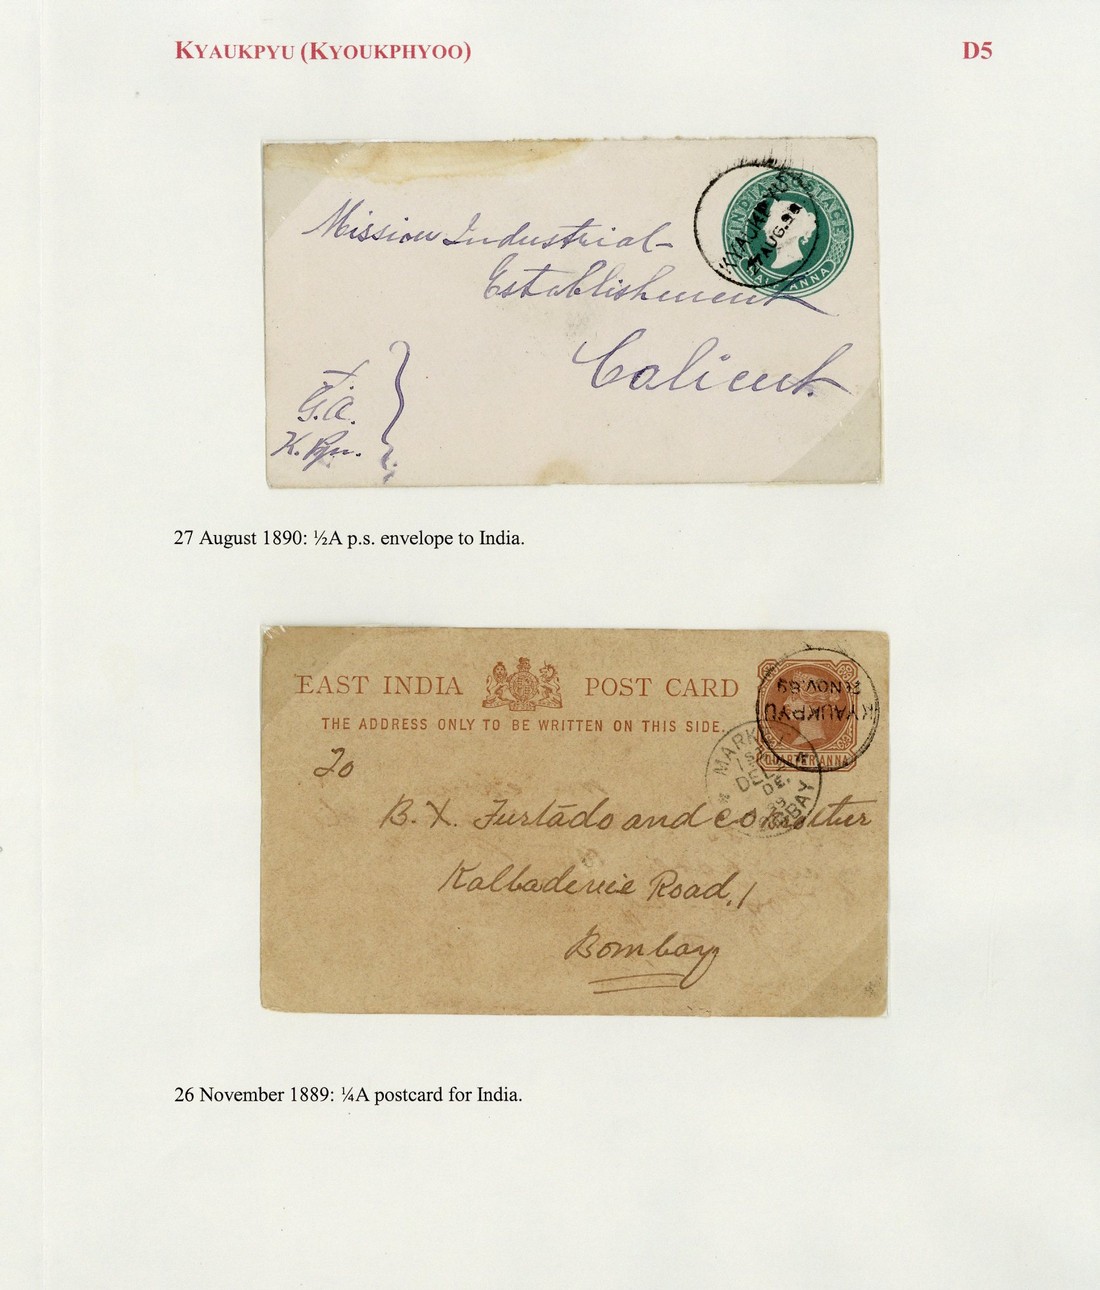 KYAUKPYU (KYOUKPHYOO)
D5
INDIA POSTAGE
HALF ANNA
KYAUKPYU
27 AUG. 90
Mission Industrial-
Establishment
Calicut
G.C.
K. Pyu.
27 August 1890: ½A p.s. envelope to India.
EAST INDIA POST CARD
THE ADDRESS ONLY TO BE WRITTEN ON THIS SIDE.
QUARTER ANNA
KYAUKPYU
NOV. 89
MARK
DEL
DE.
89
BOMBAY
To
B. X. Furtado and
Kalbadevie Road,
Bombay
26 November 1889: ¼A postcard for India.